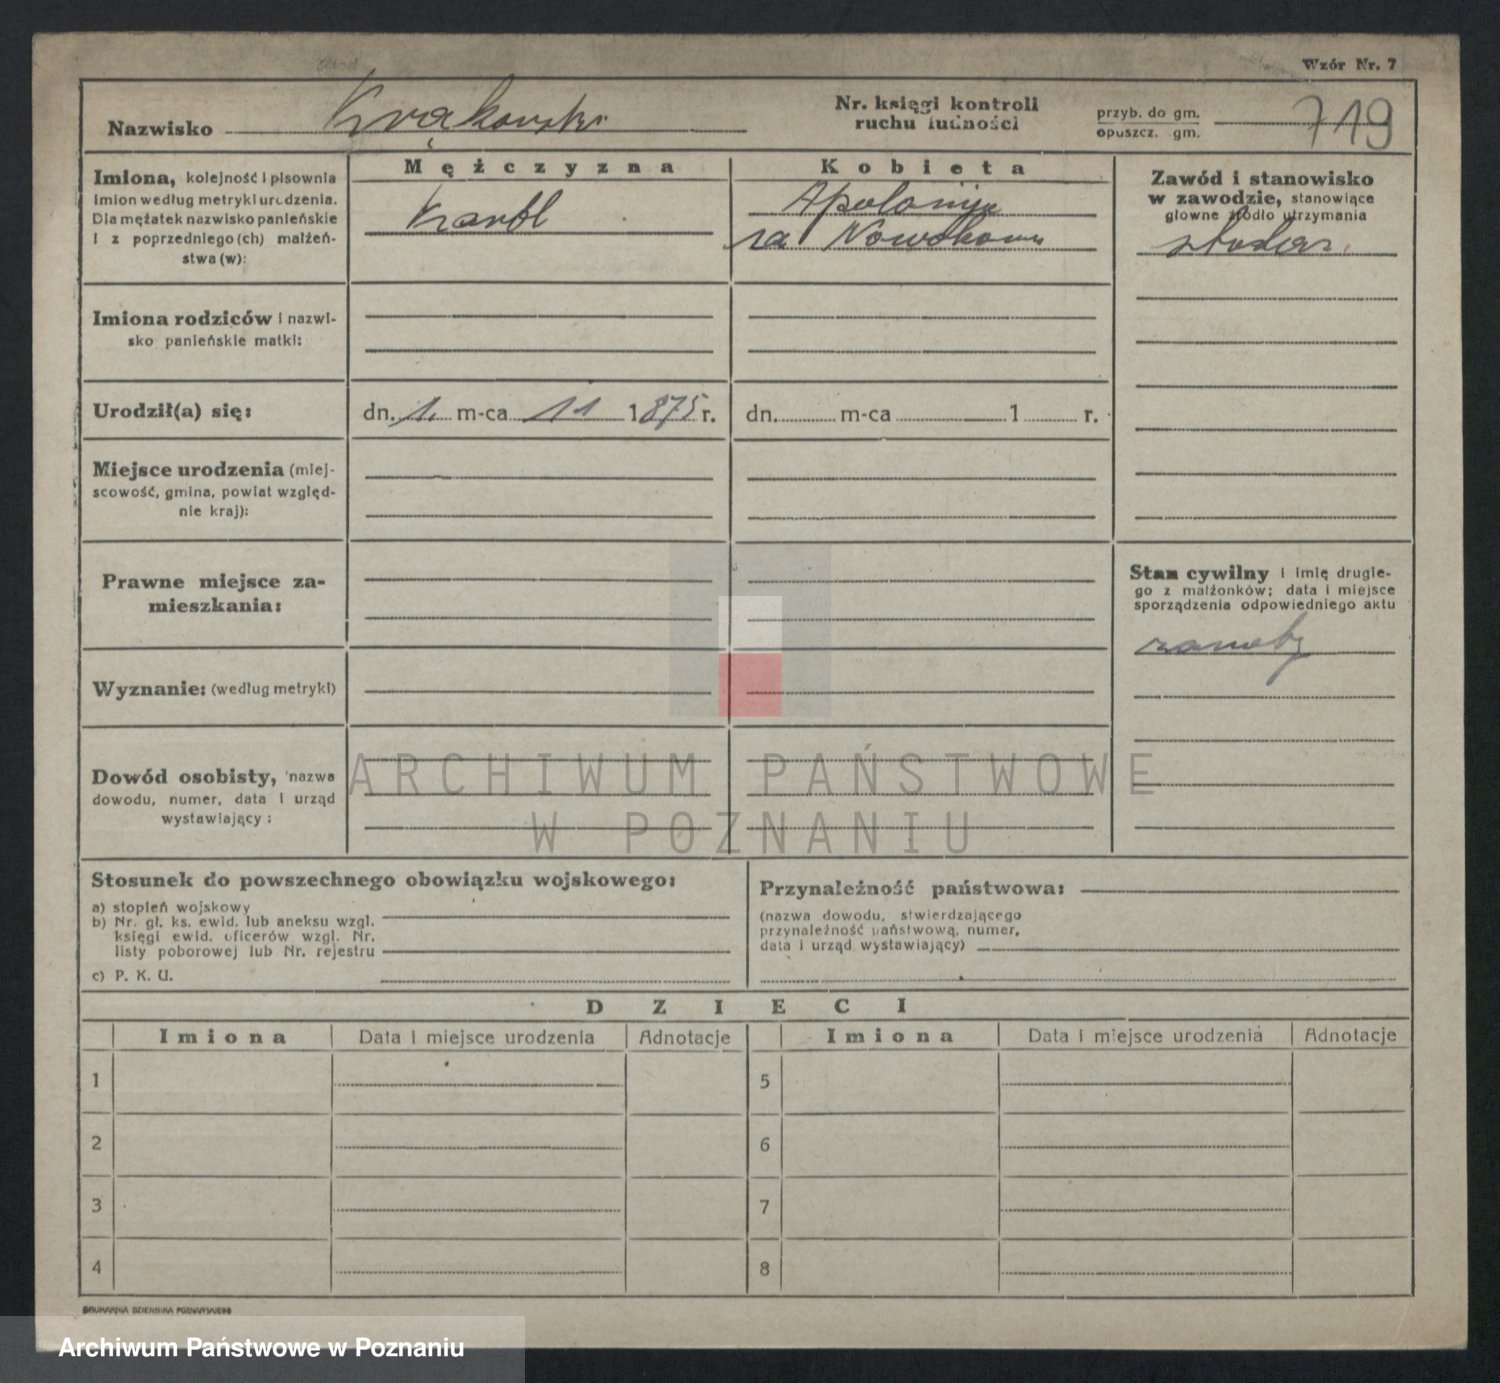 Wzór Nr. 7
Nazwisko Krakowski
Nr. księgi kontroli
ruchu ludności
przyb. do gm.
opuszcz. gm.
719
Mężczyzna
Kobieta
Imiona, kolejność i pisownia
imion według metryki urodzenia.
Dla mężatek nazwisko panieńskie
i z poprzedniego (ch) małżeń-
stwa (w):
Karol
Apolonija
za Nowakows
Zawód i stanowisko
w zawodzie, stanowiące
główne źródło utrzymania
Imiona rodziców i nazwi-
sko panieńskie matki:
Urodził(a) się:
dn. 1. m-ca 11 1875 r.
dn. m-ca 1 r.
Miejsce urodzenia (miej-
scowość, gmina, powiat względ-
nie kraj):
Prawne miejsce za-
mieszkania:
Stan cywilny i imię drugie-
go z małżonków; data i miejsce
sporządzenia odpowiedniego aktu
żonaty
Wyznanie: (według metryki)
Dowód osobisty, nazwa
dowodu, numer, data i urząd
wystawiający:
ARCHIWUM PAŃSTWOWE
W POZNANIU
Stosunek do powszechnego obowiązku wojskowego:
a) stopień wojskowy
b) Nr. gł. ks. ewid. lub aneksu wzgl.
księgi ewid. oficerów wzgl. Nr.
listy poborowej lub Nr. rejestru
c) P. K. U.
Przynależność państwowa:
(nazwa dowodu, stwierdzającego
przynależność państwową, numer,
data i urząd wystawiający)
DZIECI
Imiona Data i miejsce urodzenia Adnotacje Imiona Data i miejsce urodzenia Adnotacje
1 5
2 6
3 7
4 8
DRUKARNIA DZIENNIKA POZNAŃSKIEGO
Archiwum Państwowe w Poznaniu